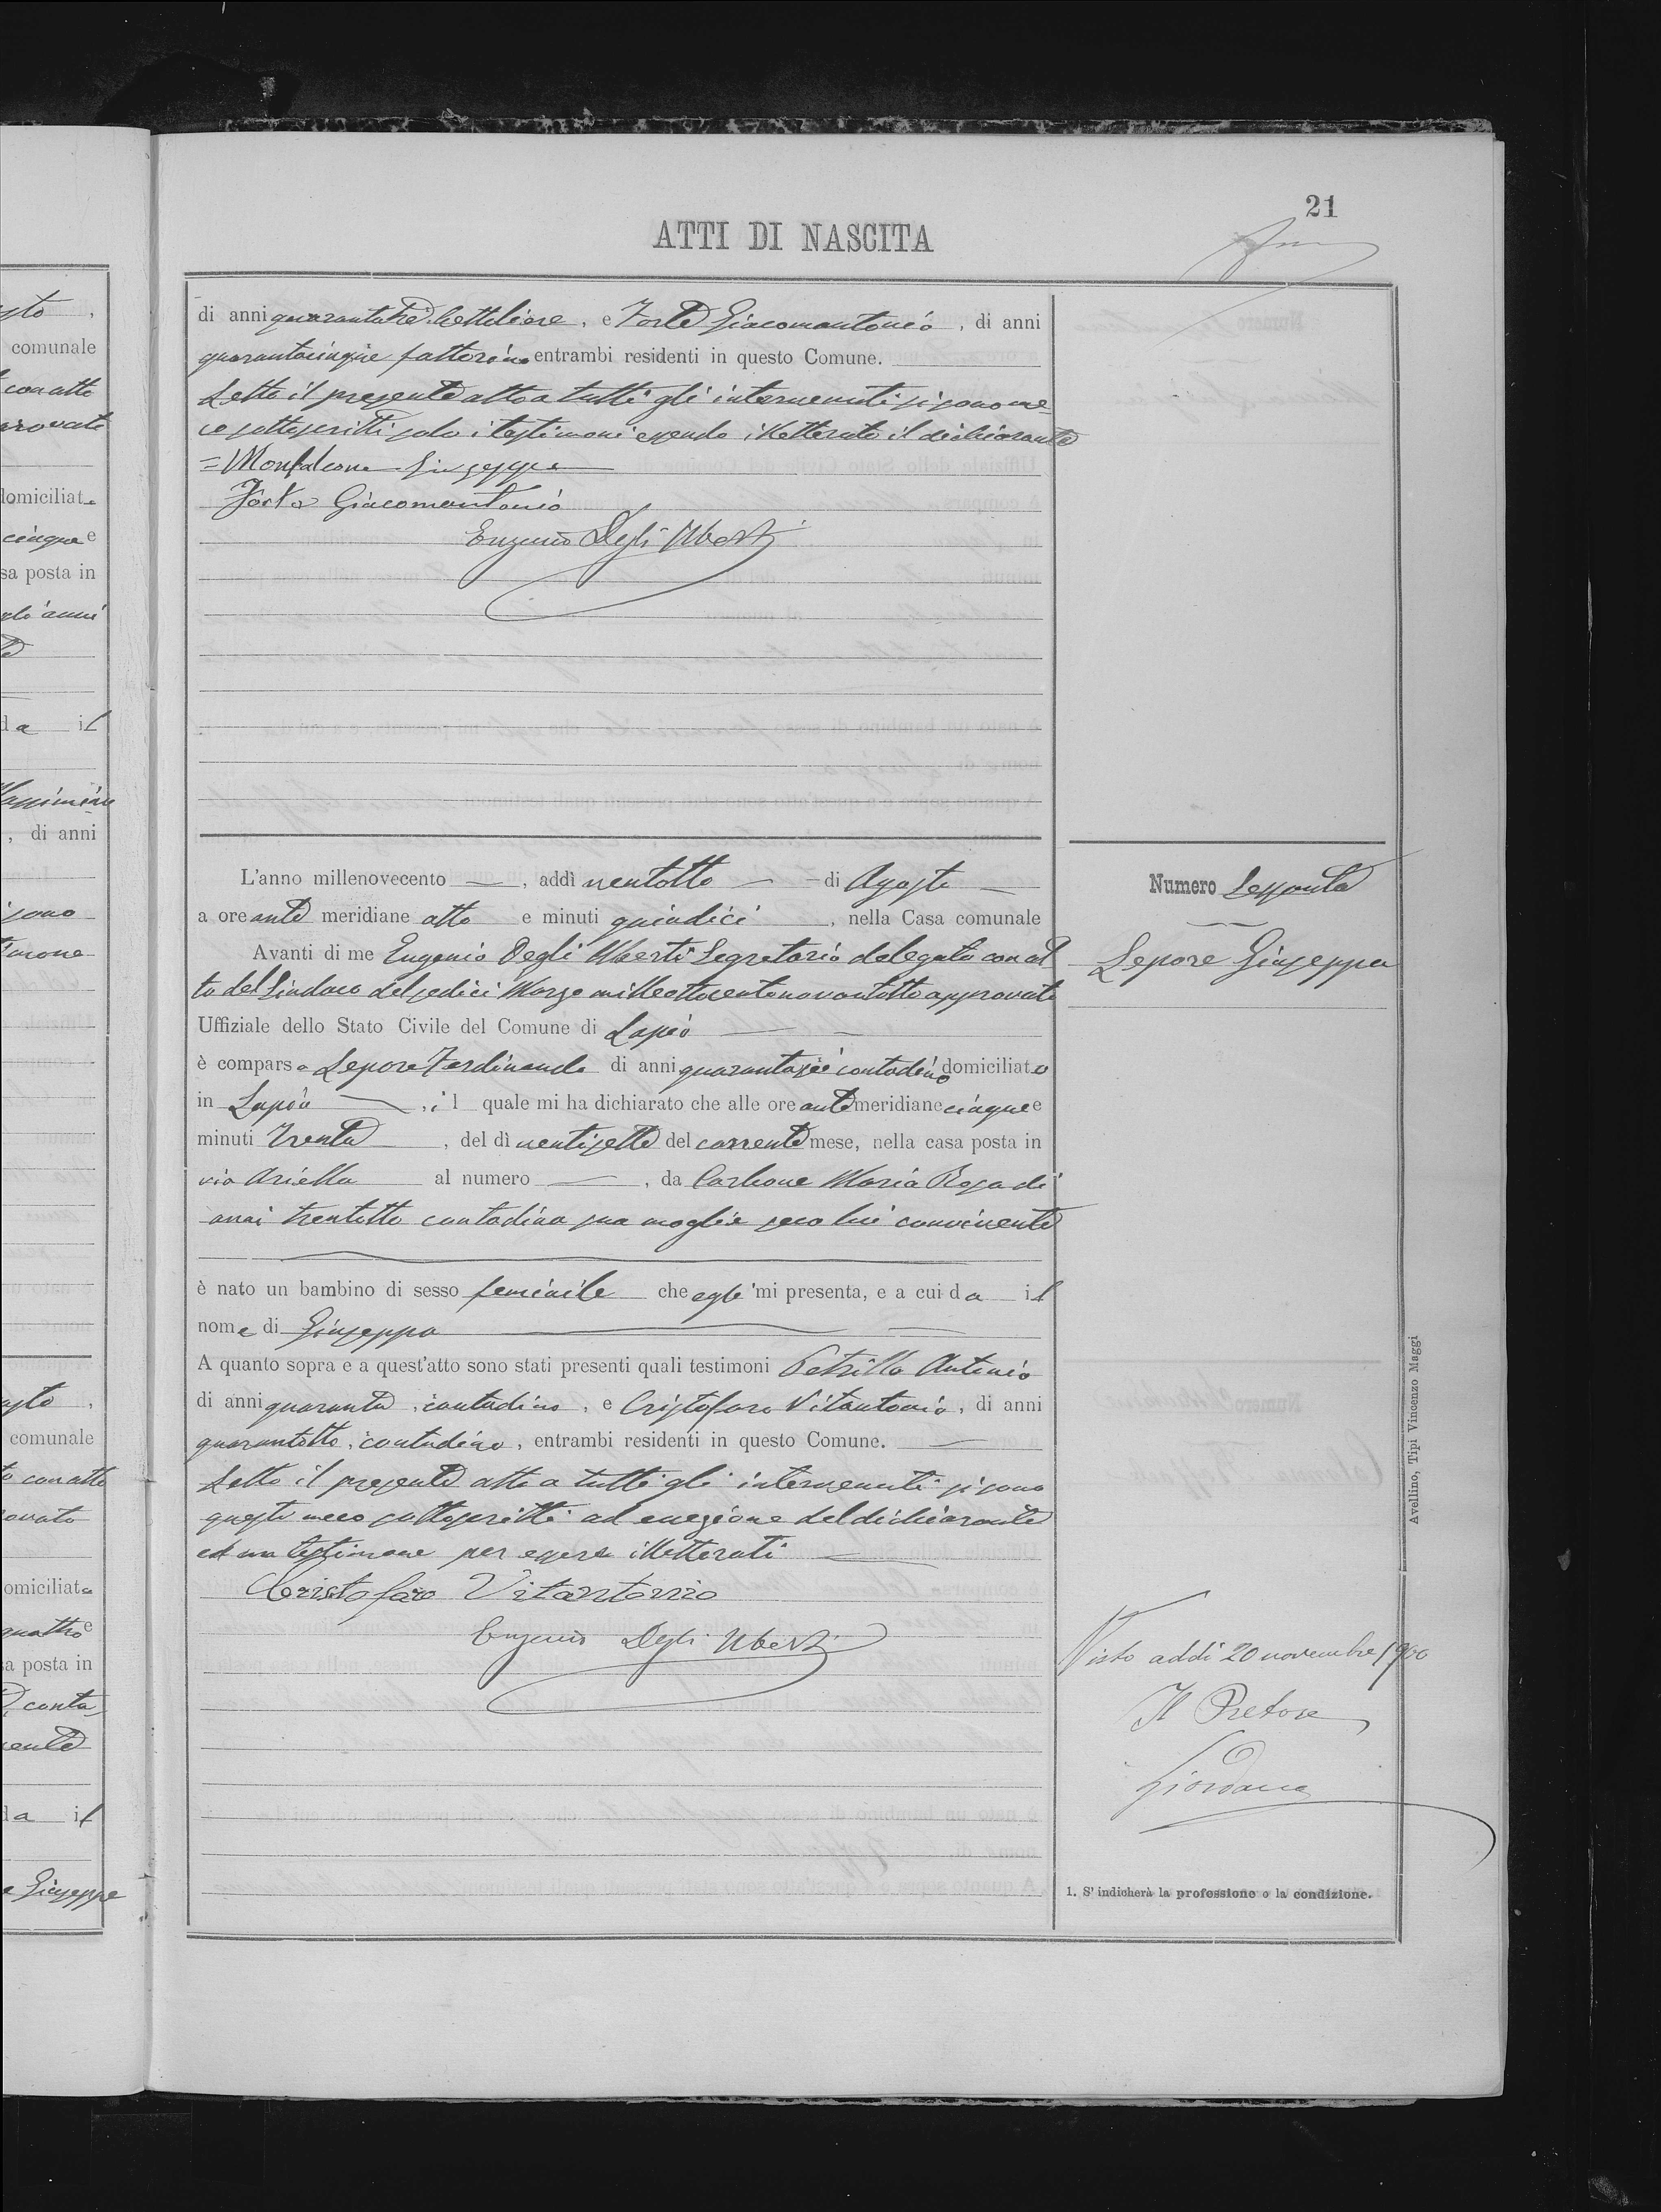 21
ATTI DI NASCITA
di anni quarantatre, bettoliere, e Forte Giacomantonio, di anni
quarantacinque fattorino entrambi residenti in questo Comune.
Letto il presente atto a tutti gli intervenuti si sono me
co sottoscritti solo i testimoni essendo illetterato il dichiarante
= Monfalcone Giuseppe
Forte Giacomantonio
Eugenio Degli Uberti
L'anno millenovecento —, addì ventotto — di Agosto —
a ore ante meridiane otto e minuti quindici, nella Casa comunale
Avanti di me Eugenio Degli Uberti Segretario delegato con at
to del Sindaco del sedici Marzo milleottocentonovantotto approvato
Uffiziale dello Stato Civile del Comune di Lapio
è comparso Lepore Ferdinando di anni quarantasei contadino domiciliato
in Lapio —, il quale mi ha dichiarato che alle ore antemeridiane cinque e
minuti trenta, del dì ventisette del corrente mese, nella casa posta in
via Ariella al numero —, da Carbone Maria Rosa di
anni trentotto contadina sua moglie seco lui convivente
è nato un bambino di sesso feminile che egli mi presenta, e a cui da il
nome di Giuseppa
A quanto sopra e a quest'atto sono stati presenti quali testimoni Petrillo Antonio
di anni quaranta, contadino, e Cristofaro Vitantonio, di anni
quarantotto, contadino, entrambi residenti in questo Comune. —
Letto il presente atto a tutti gli intervenuti si sono
questi meco sottoscritti ad eccezione del dichiarante
ed un testimone per essere illetterati
Cristofaro Vitantonio
Eugenio Degli Uberti
Numero Sessanta
Lepore Giuseppa
Visto addì 20 novembre 1900
Il Pretore
Giordano
1. S'indicherà la professione o la condizione.
Avellino, Tipi Vincenzo Maggi
sto,
comunale
con atto
provato
domiciliat
cinque e
sa posta in
gli anni
da il
, di anni
sono
osto,
comunale
to con atto
rovato
omiciliata
quattro e
a posta in
conta
vente
da il
e Giuseppe